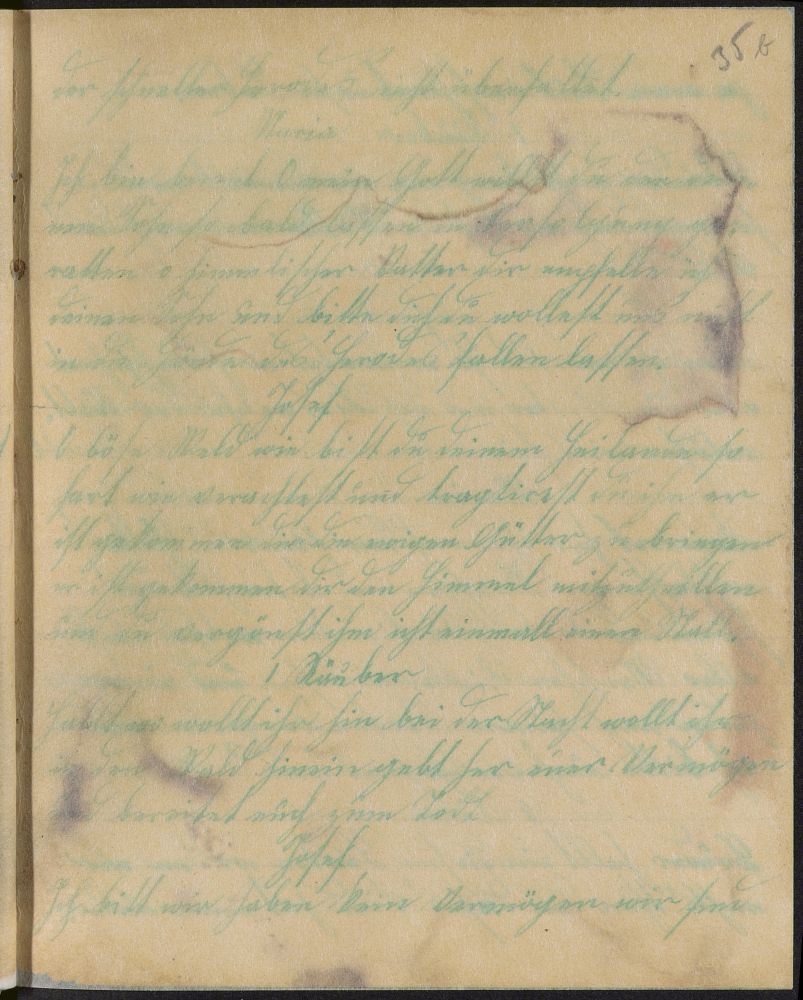 35 b
der schnelle Herodes nicht überfallet.
Maria
Ich bin bereit O mein Gott willst du den
nen Sohn so bald lassen in Verfolgung ge
ratten o himmlischer Vatter dir empfelle ich
deinen Sohn und bitte dich du wollest uns nicht
in die Hände des Herodes fallen lassen.
Josef
O böse Weld wie bist du deinem Heilande so
hart wie verachtest und du ihn er
ist gekommen dir die ewigen Gütter zu bringen
er ist gekommen dir den Himmel mitzutheillen
und du vergönst ihm nicht einmall einen Stall.
1 Räuber
Halt wo wollt ihr hin bei der Nacht wollt ihr
in den Wald hinein gebt her euer Vermögen
und bereitet euch zum Tod
Josef
Ich bitt wir haben kein Vermögen wir sind